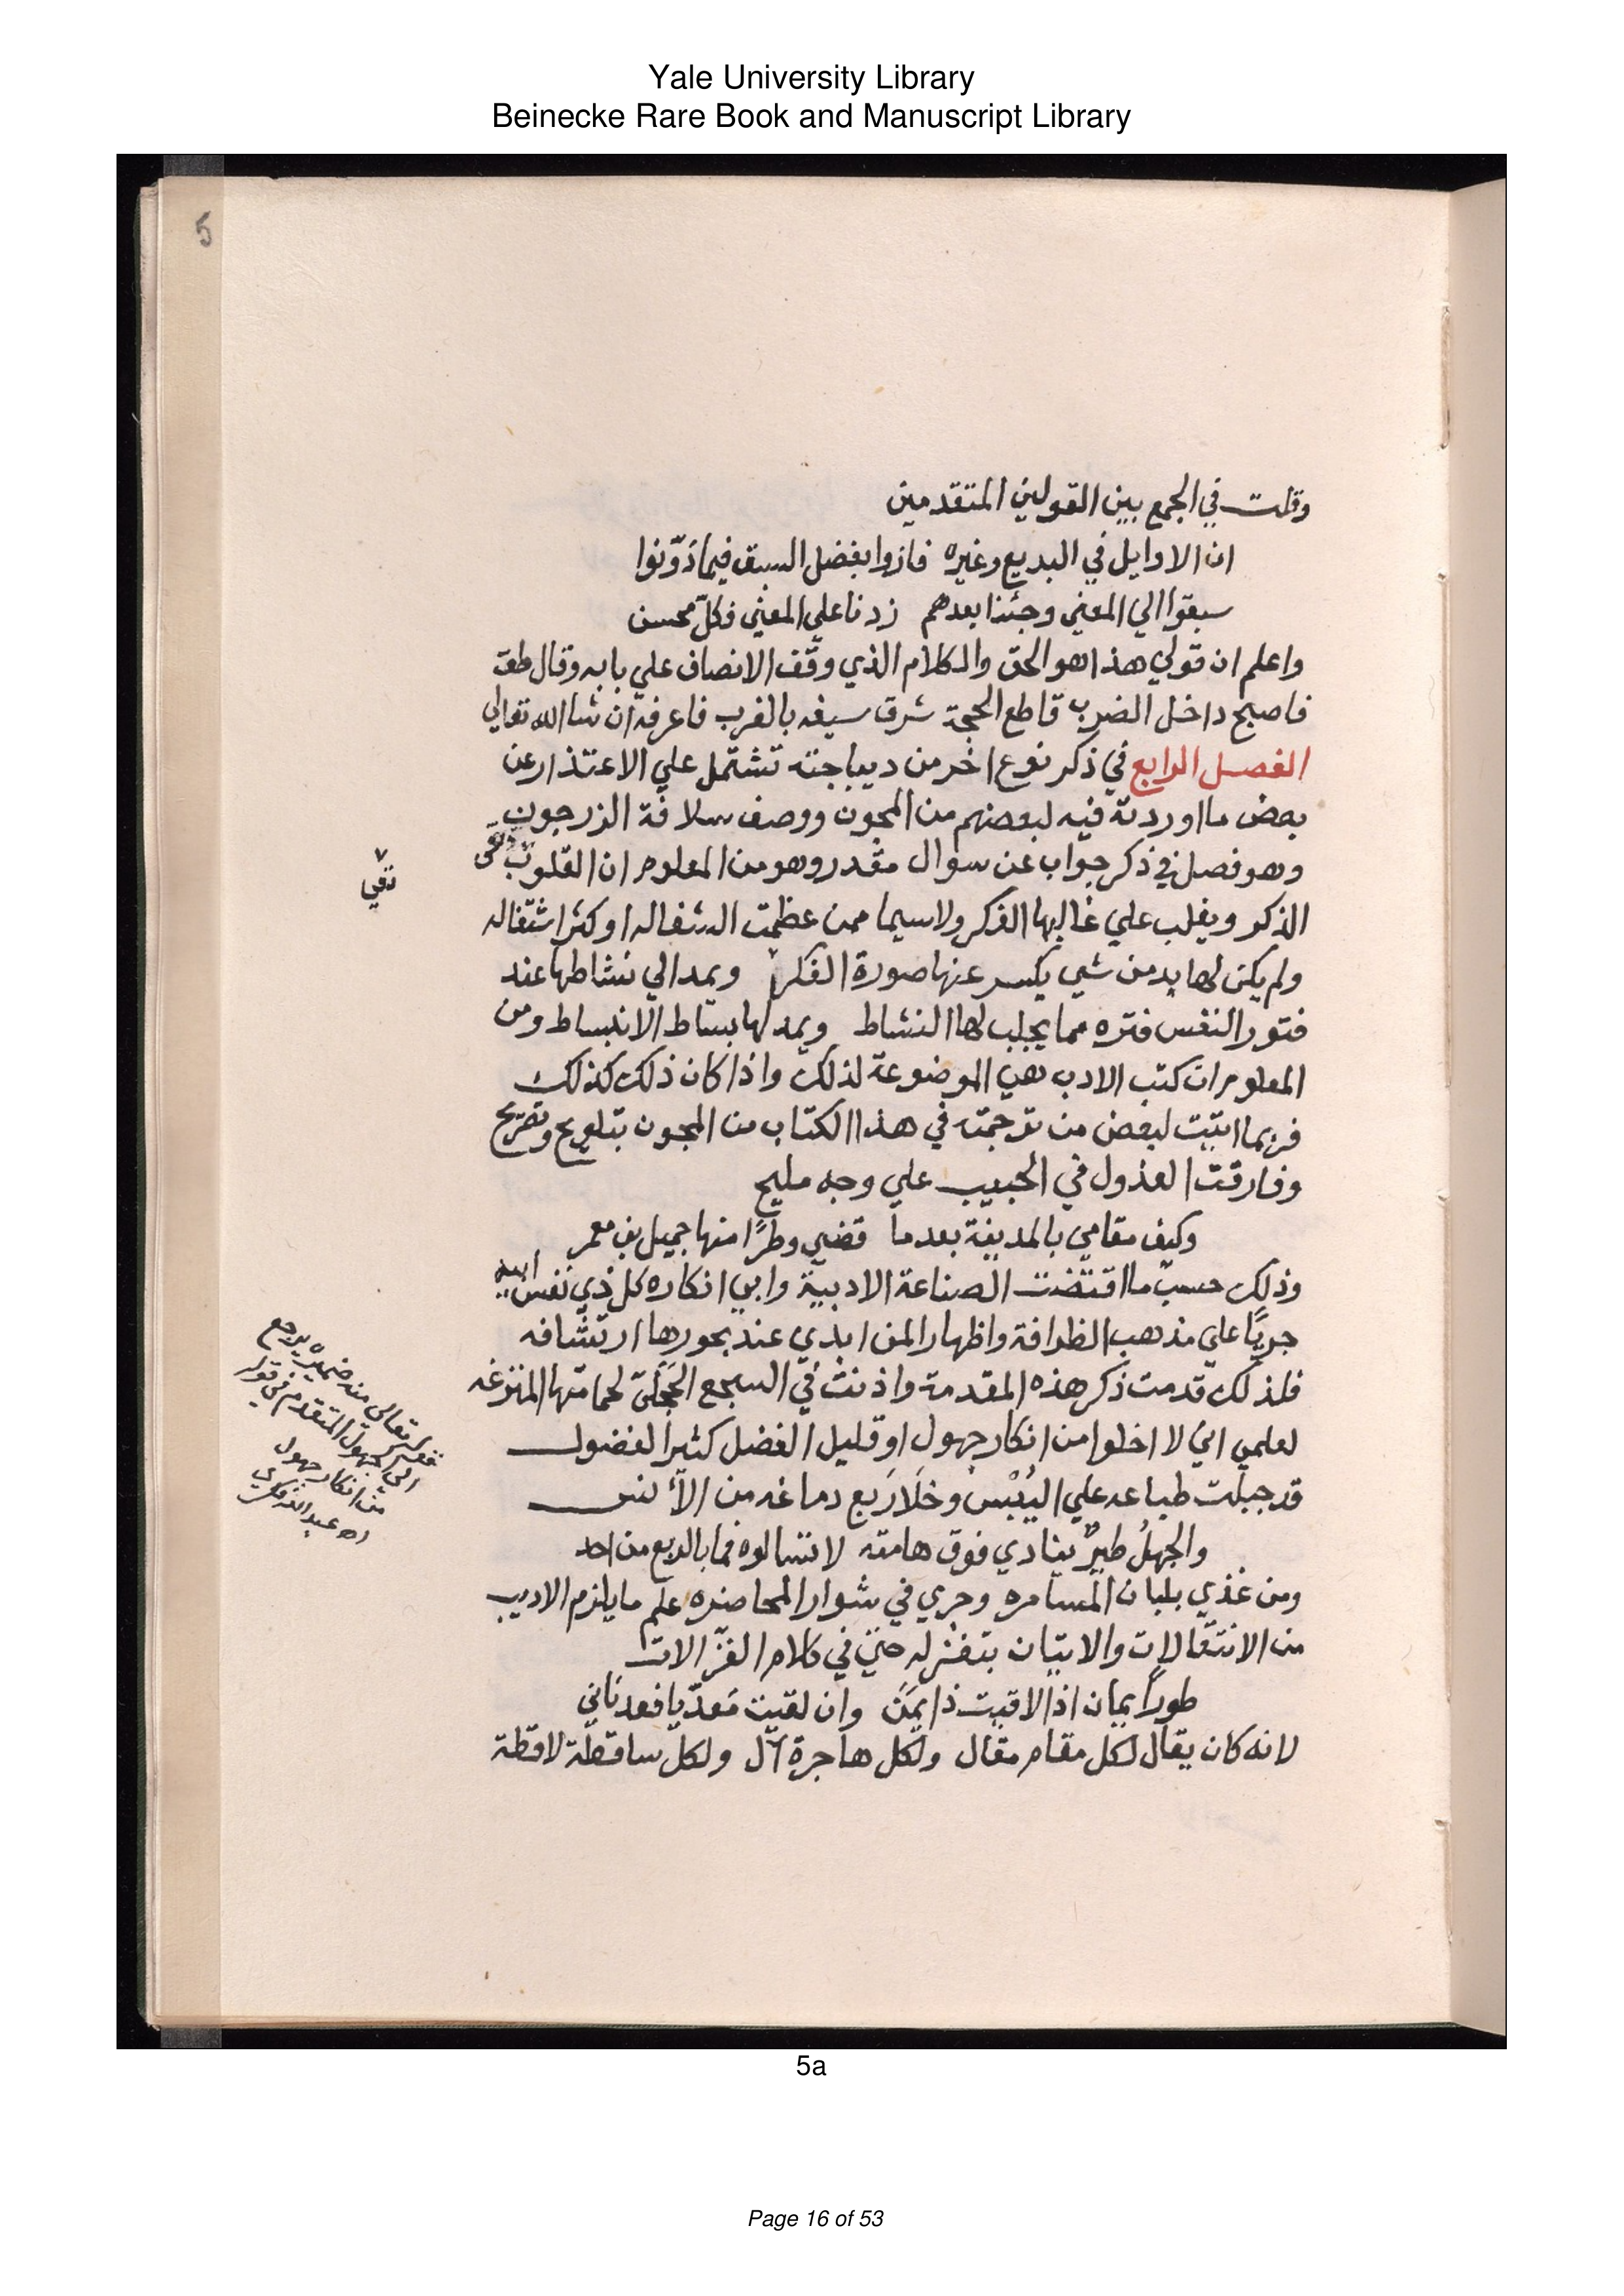 Yale University Library
Beinecke Rare Book and Manuscript Library
5
وقلت في الجمع بين القولين المتقدمين
ان الاوايل في البديع وغيره فازوا بفضل السبق فيما دَوّنوا
سبقوا الي المعني وجئنا بعدهم زدنا علي المعني فكلّ محسن
واعلم ان قولي هذا هو الحق والكلام الذي وقف الانصاف علي بابه وقال طق
فاصبح داخل الضرب قاطع الحجة شرق سيفه بالغرب فاعرفه ان شا الله تعوالي
الفصل الرابع في ذكر نوع اخر من ديباجته تشتمل علي الاعتذار عن
بعض ما اوردته فيه لبعضهم من المجون ووصف سلافة الزرجون
وهو فصل في ذكر جواب عن سوال مقدر وهو من المعلوم ان القلوب
الذكر ويغلب علي غالبها الفكر ولا سيما ممن عظمت اشغاله او كثر اشتغاله
ولم يكن لها بد من شي يكسر عنها صورة الفكر ويمد الي نشاطها عند
فتور النفس فتره مما يجلب لها النشاط ويمد لها بساط الانبساط ومن
المعلوم ان كتب الادب هي الموضوعة لذلك واذا كان ذلك كذلك
فربما اثبت لبعض من ترجمته في هذا الكتاب من المجون بتلويح وتصريح
وفارقت العذول في الحبيب علي وجه مليح
وكيف مقامي بالمدينة بعدما قضي وطرًا منها جميل بن معمر
وذلك حسب ما اقتضت الصناعة الادبية وابي انكاره كل ذي نفس ابيه
جريًا علي مذهب الظرافة واظهار المن ابدي عند بحورها ارتشافه
فلذلك قدمت ذكر هذه المقدمة واذنت في السجع الحجلي لحمامتها المنزغه
لعلمي اني لا اخلوا من انكار جهول او قليل الفضل كثير الفضول
قد جبلت طباعه علي اليُبْس وخلا رَبع دماغه من الأنس
والجهلُ طيرٌ ينادي فوق هامته لا تسالوه فما بالربع من احد
ومن غذي بلبان المسامره وجري في شوار المحاضره علم ما يلزم الاديب
من الانتقالات والاتيان بتغزله حتي في كلام الغزّالات
طوراً يمان اذا لاقيت ذا يَمَن وان لقيت مَعدّيا فعدناني
لانه كان يقال لكل مقام مقال ولكل هاجرة آل ولكل ساقطة لاقطة
قوله تعالى منه ضميره يرجع
الى الجهول المتقدم في قوله
من انكار جهول
اه عبد الله فكري
5a
Page 16 of 53